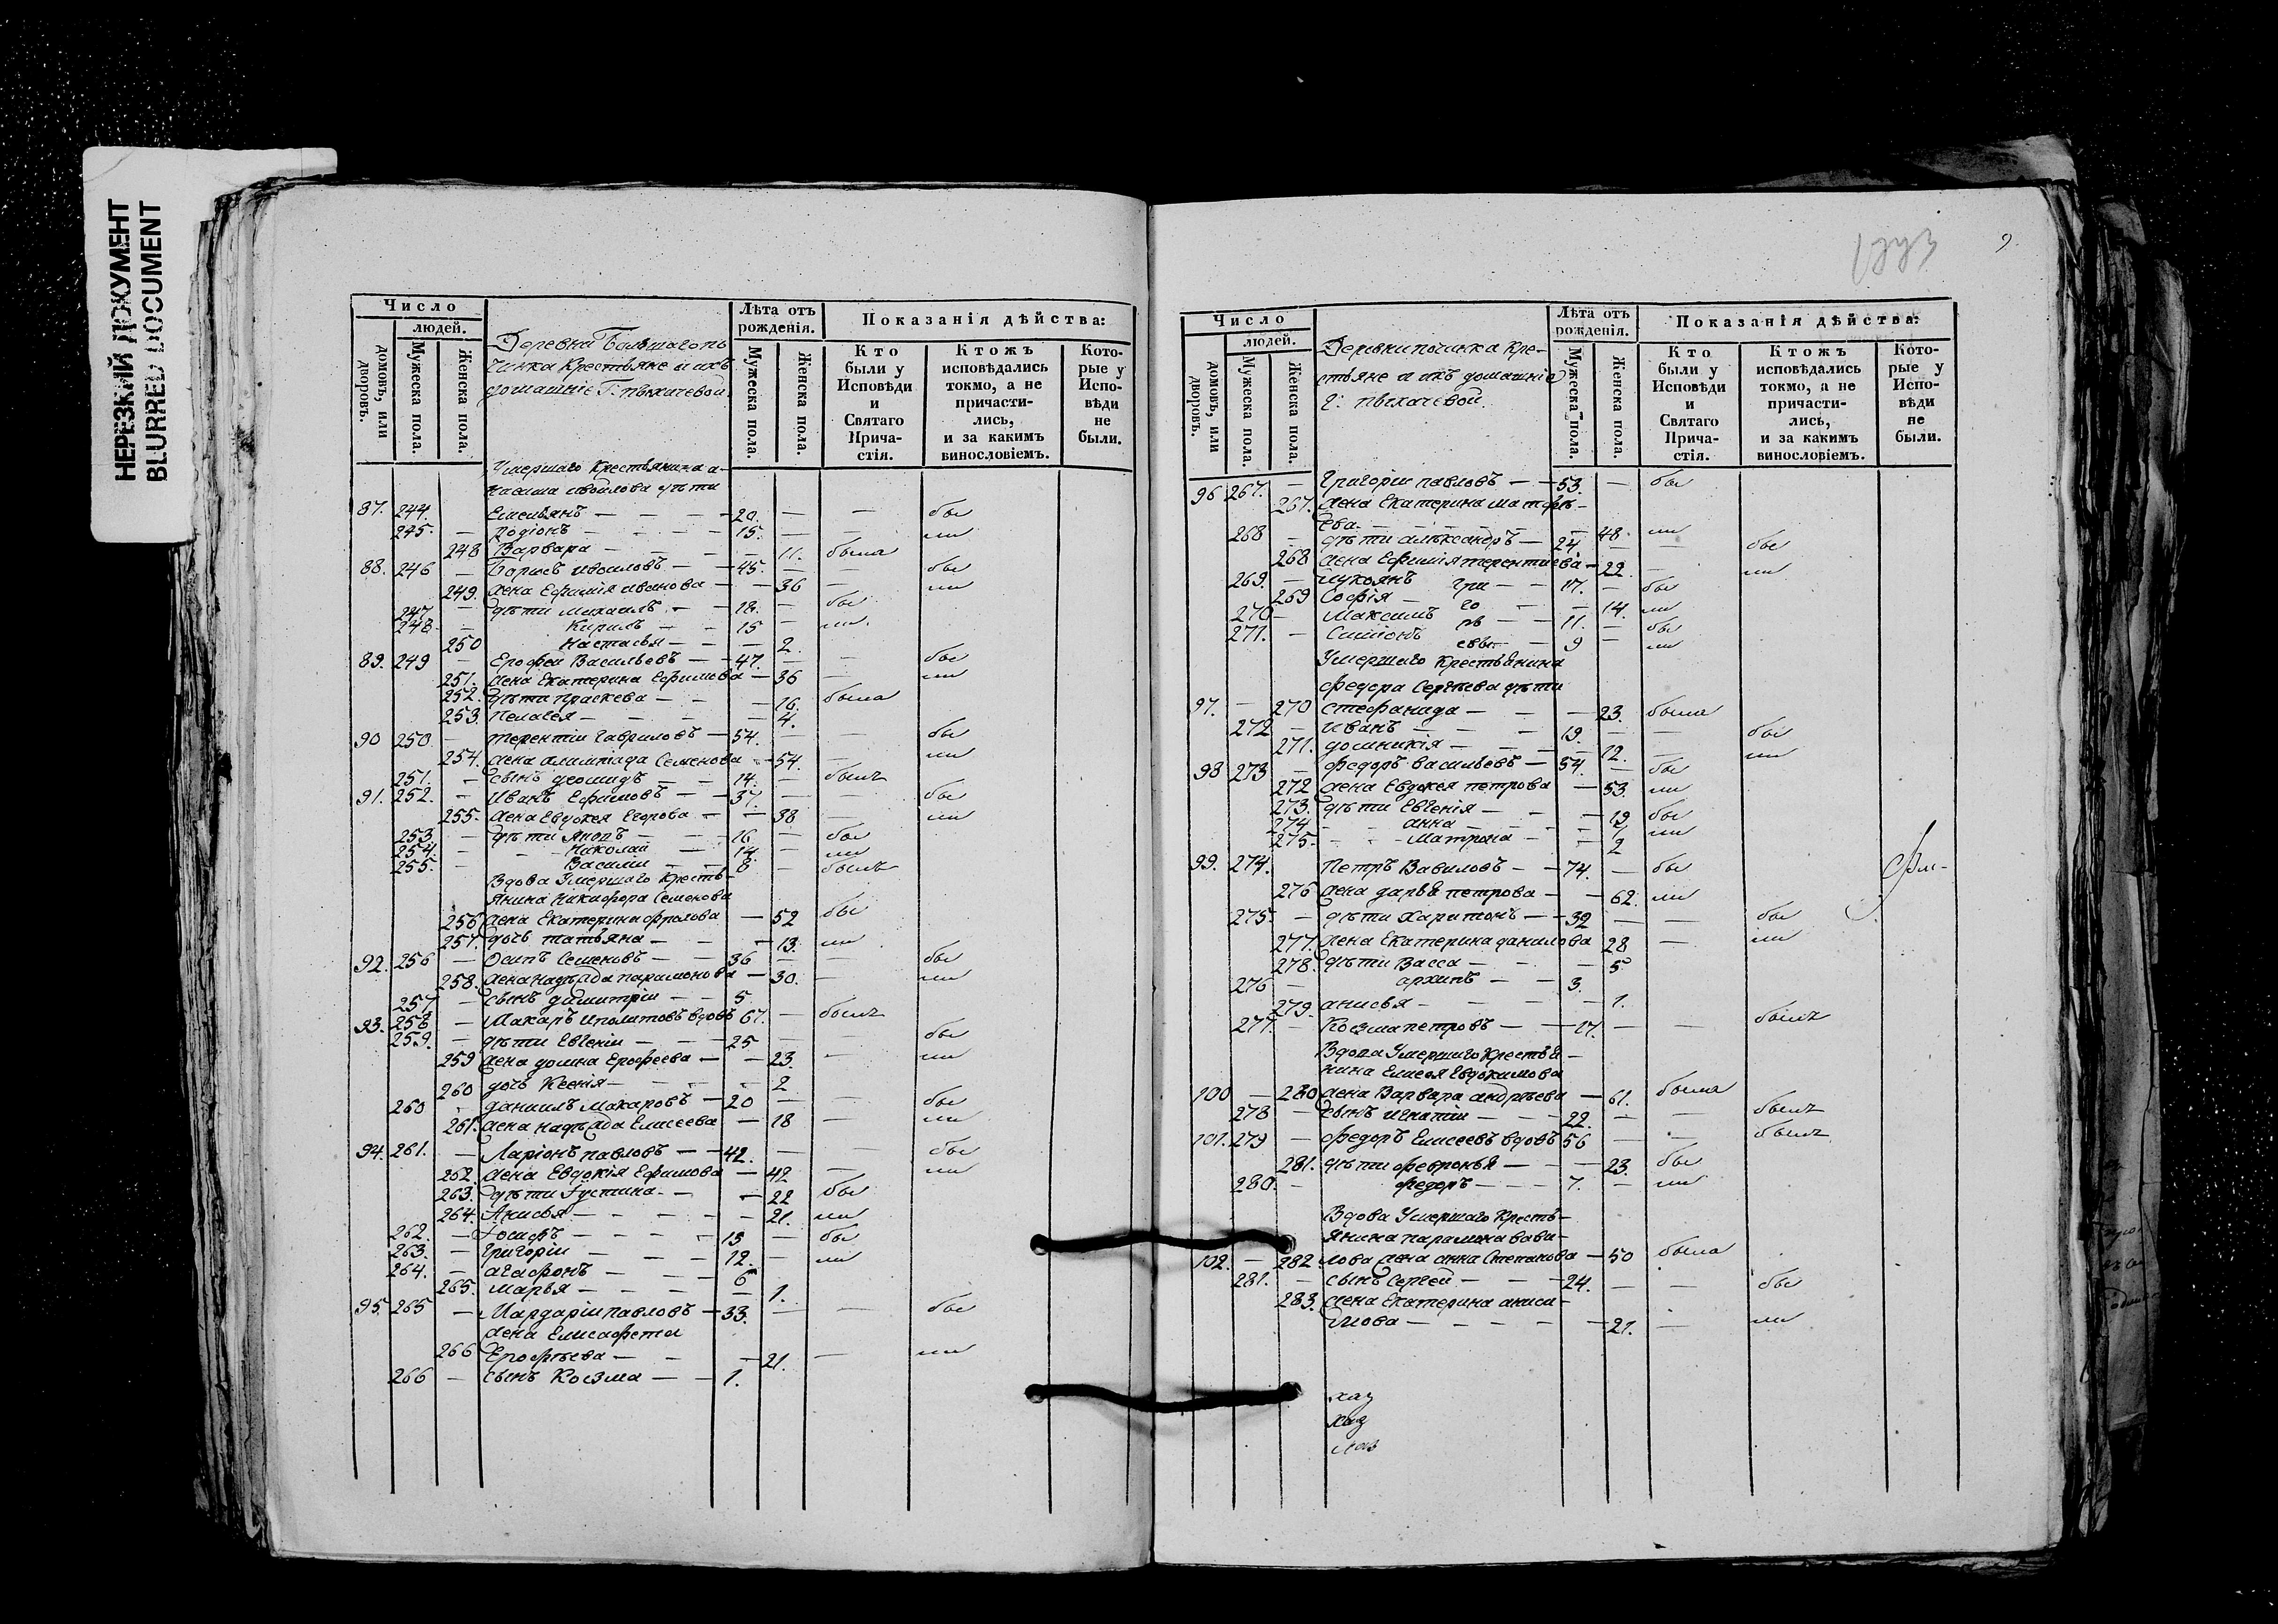 НЕРЕЗКИЙ ДОКУМЕНТ
BLURRED DOCUMENT
Число
людей.
домовъ, или дворовъ.
Мужеска пола.
Женска пола.
Деревни Большаго по
чинка Крестьяне и ихъ
домашніе Г. пыхачевой
Лѣта отъ рожденія.
Мужеска пола.
Женска пола.
Показанія дѣйства:
Кто были у Исповѣди и Святаго Причастія.
Ктожъ исповѣдались токмо, а не причастились, и за какимъ винословіемъ.
Которые у Исповѣди не были.
Умершаго Крестьянина а-
дѣти
87. 244. Емельянъ — 20. — — бы
245. — Родіонъ — 15. — ли
248 Варвара — 11. была
88. 246 — Борисъ — 45. — — бы
249. жена Ефимія иванова — 36 — ли
247. — дѣти Михаилъ — 18. — бы
248. — Кирилъ — 15 — ли
250 Настасья — 2.
89. 249 — Ерофей Васильевъ — 47. — — бы
251. жена Екатерина Ефимова — 36 — ли
252. дѣти Праскева — 16. была
253 Пелагея — 4.
90 250 — терентіи Гавриловъ — 54. — — бы
254. жена олимпіада Семенова — 54. — ли
251. — сынъ — 14. — былъ
91. 252. — Иванъ Ефимовъ — 37 — — бы
255. жена Евдокея Егорова — 38 — ли
253 — дѣти — 16. — бы
254. — Николай — 14. — ли
255. — Василіи — 8 — былъ
Вдова Умершаго Кресть-
янина Никифора Семенова
256 жена Екатерина фролова — 52 бы
257. дочь татьяна — 13. ли
92. 256 — Осипъ Семеновъ — 36 — — бы
258. жена надѣжда парамонова — 30. — ли
257 — сынъ димитріи — 5.
93. 258 — Макаръ Иполитовъ вдовъ 67. — былъ
259. — дѣти Евгеніи — 25 — — бы
259 жена домна Ерофеева — 23. — ли
260 дочь Ксенія — 2
260 — даниилъ Макаровъ — 20 — — бы
261. жена надѣжда Елисеева — 18 — ли
94. 261. — Ларіонъ павловъ — 42. — — бы
262. жена Евдокія Ефимова — 42 — ли
263. дѣти Густина — 22 бы
264. Анисья — 21. ли
262. — Іосифъ — 15 — бы
263. — Григоріи — 12. — ли
264. — агафонъ — 6
265. марья — 1.
95. 265 — Мардаріи павловъ — 33. — — бы
жена Елисафета
266 Ерофѣева — 21. — ли
266 — сынъ Козма — 1.
1223
9.
Число
людей.
домовъ, или дворовъ.
Мужеска пола.
Женска пола.
Деревни починка Кре-
стьяне и ихъ домашніе
Г. пыхачевой.
Лѣта отъ рожденія.
Мужеска пола.
Женска пола.
Показанія дѣйства:
Кто были у Исповѣди и Святаго Причастія.
Ктожъ исповѣдались токмо, а не причастились, и за какимъ винословіемъ.
Которые у Исповѣди не были.
96 267. — Григоріи павловъ — 53. — бы
267. жена Екатерина матфѣ-
ева — 48. ли
268 — дѣти алѣксандръ — 24. — — бы
268 жена Ефимія терентиева — 22 — ли
269. — лукоянъ Гри — 17. — бы
269 Софія — го — 14. ли
270 — Максимъ рь — 11. — бы
271. — Симіонъ евы — 9 — ли
Умершаго Крестьянина
федора Сергѣева дѣти
97. — 270 стефанида — 23. была
272 — иванъ — 19. — — бы
271. домникія — 12. — ли
98 273 — федоръ васильевъ — 54. — бы
272 жена Евдокея петрова — 53. ли
273. дѣти Евгенія — 19 бы
274 анна — 7 ли
275 Матрона — 2
99. 274. Петръ Вавиловъ — 74. — бы
276 жена дарья петрова — 62. ли
275 — дѣти харитонъ — 32 — — бы
277. жена Екатерина данилова 28 — ли
278. дѣти Васса — 5
276 — архипъ — 3.
279 анисья — 1.
277. — Козма петровъ — 17. — — былъ
Вдова Умершаго Крестья-
нина Елисея Евдокимова
100 — 280 жена Варвара андрѣева — 61. была
278 — сынъ игнатіи — 22. — — былъ
101. 279 — федоръ Елисеевъ вдовъ 56 — — былъ
281. дѣти февронья — 23. бы
280. — федоръ — 7. — ли
Вдова Умершаго Кресть-
янина парамона вави-
102. — 282 лова жена анна Степанова — 50 была
281. — сынъ Сергей — 24. — — бы
283. жена Екатерина аниси-
мова — 21. — ли